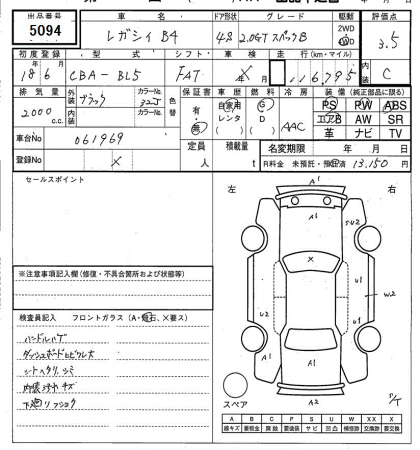 出品番号 車名 ドア形状 グレード 駆動 評価点
5094 レガシィ B4 4S 2.0GT スペックB 2WD 4WD 3.5
初度登録 型式 シフト 車検 走行(km・マイル) 内装
18年6月 CBA-BL5 FAT X 116,795 C
排気量 外装 ブラック カラーNo. 32J 色替 保証書 車歴 燃料 冷房 装備(純正部品に限る)
2000 c.c. 内装 カラーNo. 有・無 自家用 レンタ G D AAC PS PW ABS
エアB AW SR
革 ナビ TV
車台No 061969 定員 人 積載量 t 名変期限 年 月 日
登録No X R料金 未預託・預託済 13,150円
セールスポイント
左 右
※注意事項記入欄(修復・不具合箇所および状態等)
検査員記入 フロントガラス(A・飛石、X要ス)
ハンドルハゲ
ダッシュボードヒビワレ大
シートヘタリ、シミ
内装ヨゴレ キズ
下廻リフショク
A1
A1
SU2
X
U1
W2
U2
U1
A1
A1
A2
スペア
A B C P S U W X XX X